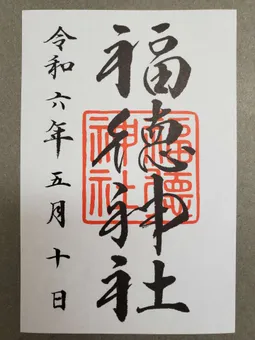 福徳神社
福徳神社
令和六年五月十日